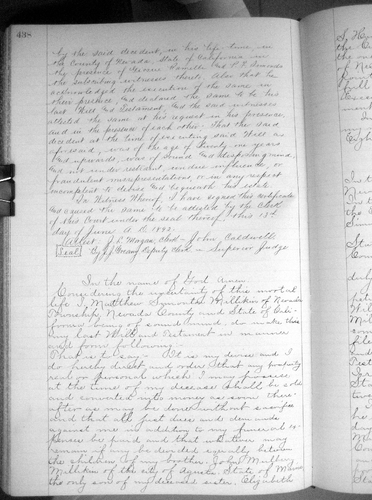 438
by the said decedent, in his life time, in
the County of Nevada, State of California in
the presence of
the subscribing witnesses thereto. Also that he
acknowledged the execution of the same in
their presence, and declared the same to be his
last Will and Testament, and the said witnesses
attested the same at his request in his presence,
and in the presence of each other. That the said
decedent at the time of executing said Will as
aforesaid, was of the age of twenty one years
and upwards, was of sound and disposing mind,
and not under restraint, undue influence, or
fraudulent misrepresentations, or in any respect
incompetent to devise and bequeath his estate
In Witness Whereof, I have signed this certificate
and caused the same to be attested by the Clerk
of this Court under the seal thereof, this 13th
day of June A. D. 1892.
Attest. J. L. Morgan, Clerk - John Caldwell
Seal By Deputy Clerk - Superior Judge
In the name of God Amen
Considering the uncertainty of this mortal
life I, Matthew Symonton Milliken of Nevada
Township Nevada County and State of Cali-
fornia being of sound mind do make this
my last Will and Testament in manner
and form following.
That is to say. It is my desire and I
do hereby direct and order that any property
real or personal which I may possess
at the time of my decease shall be sold
and converted into money as soon there-
after as may be done without sacrifice
and that all just dues and demands
against me in addition to my funeral ex-
penses be paid and that whatever may
remain if any be devoted equally between
the children of my brother, John
Milliken of the city of Agusta, State of Maine
the only son of my deceased sister, Elizabeth